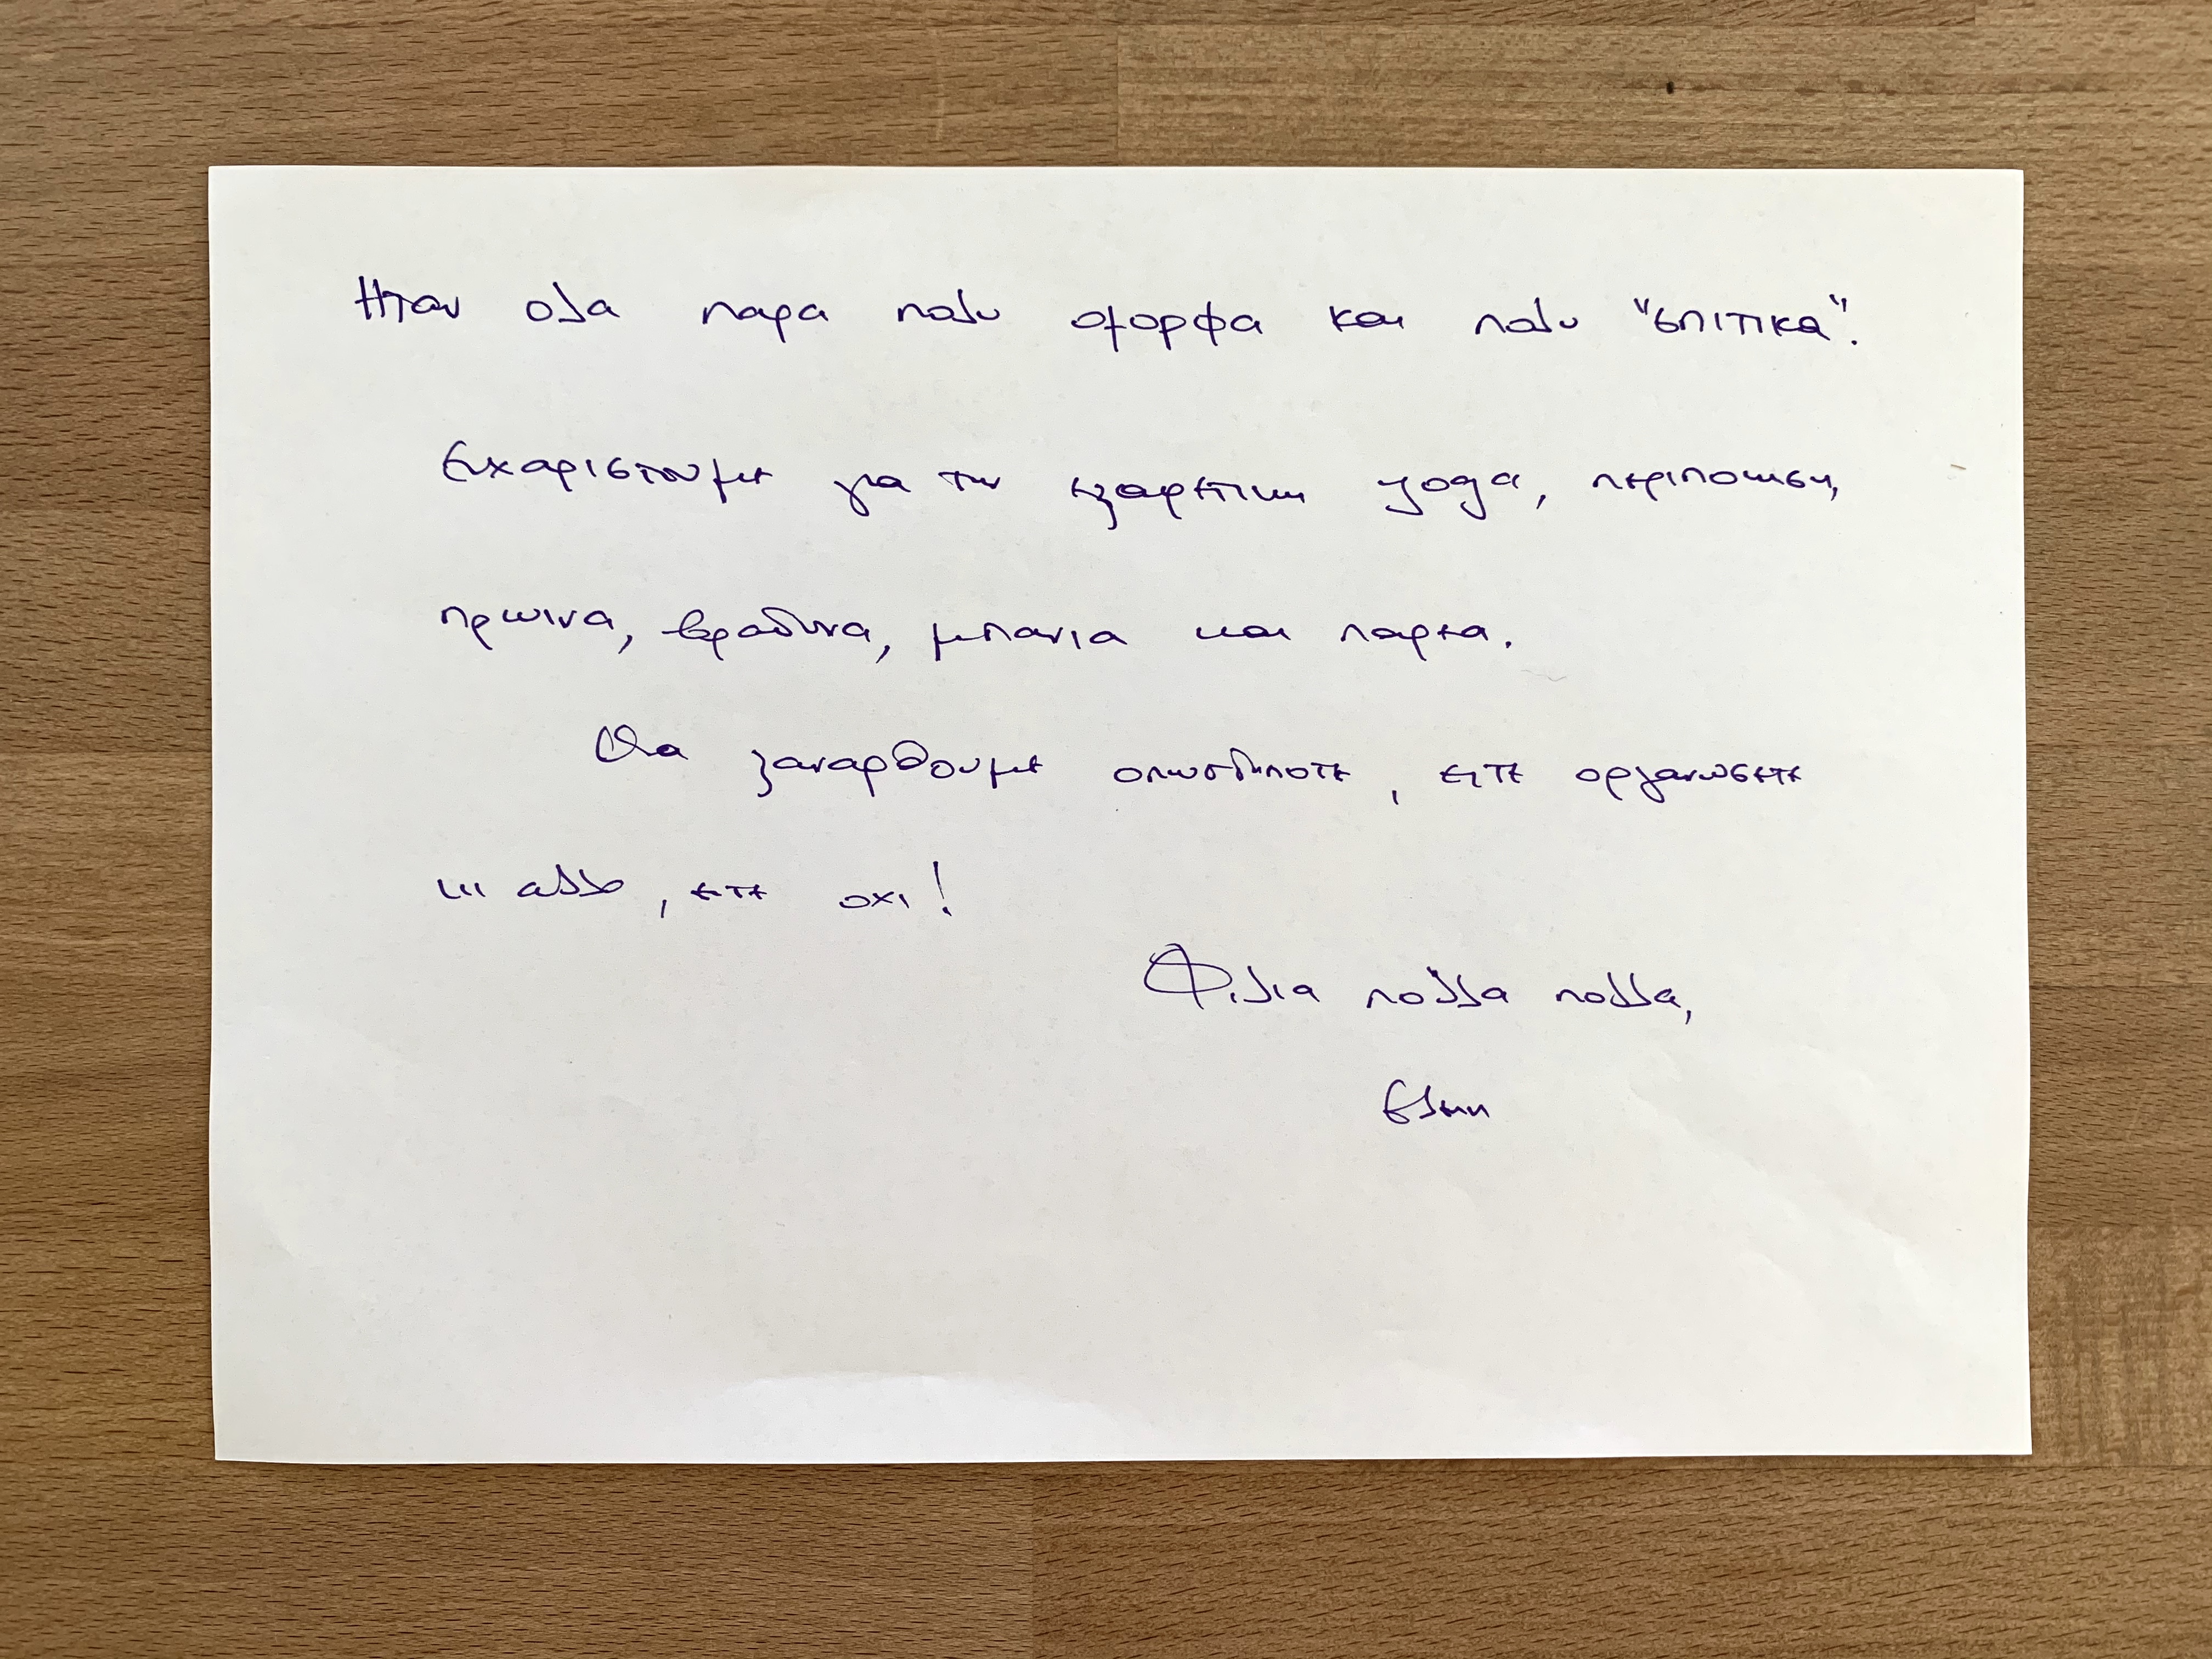 Ηταν ολα παρα πολυ ομορφα και πολυ "σπιτικα".
Ευχαριστουμε για την εξαιρετικη yoga, περιποιηση,
πρωινα, βραδινα, μπανια και παρεα.
Θα ξαναρθουμε οπωσδηποτε, ειτε οργανωσετε
κι αλλο, ειτε οχι!
Φιλια πολλα πολλα,
Ελενη